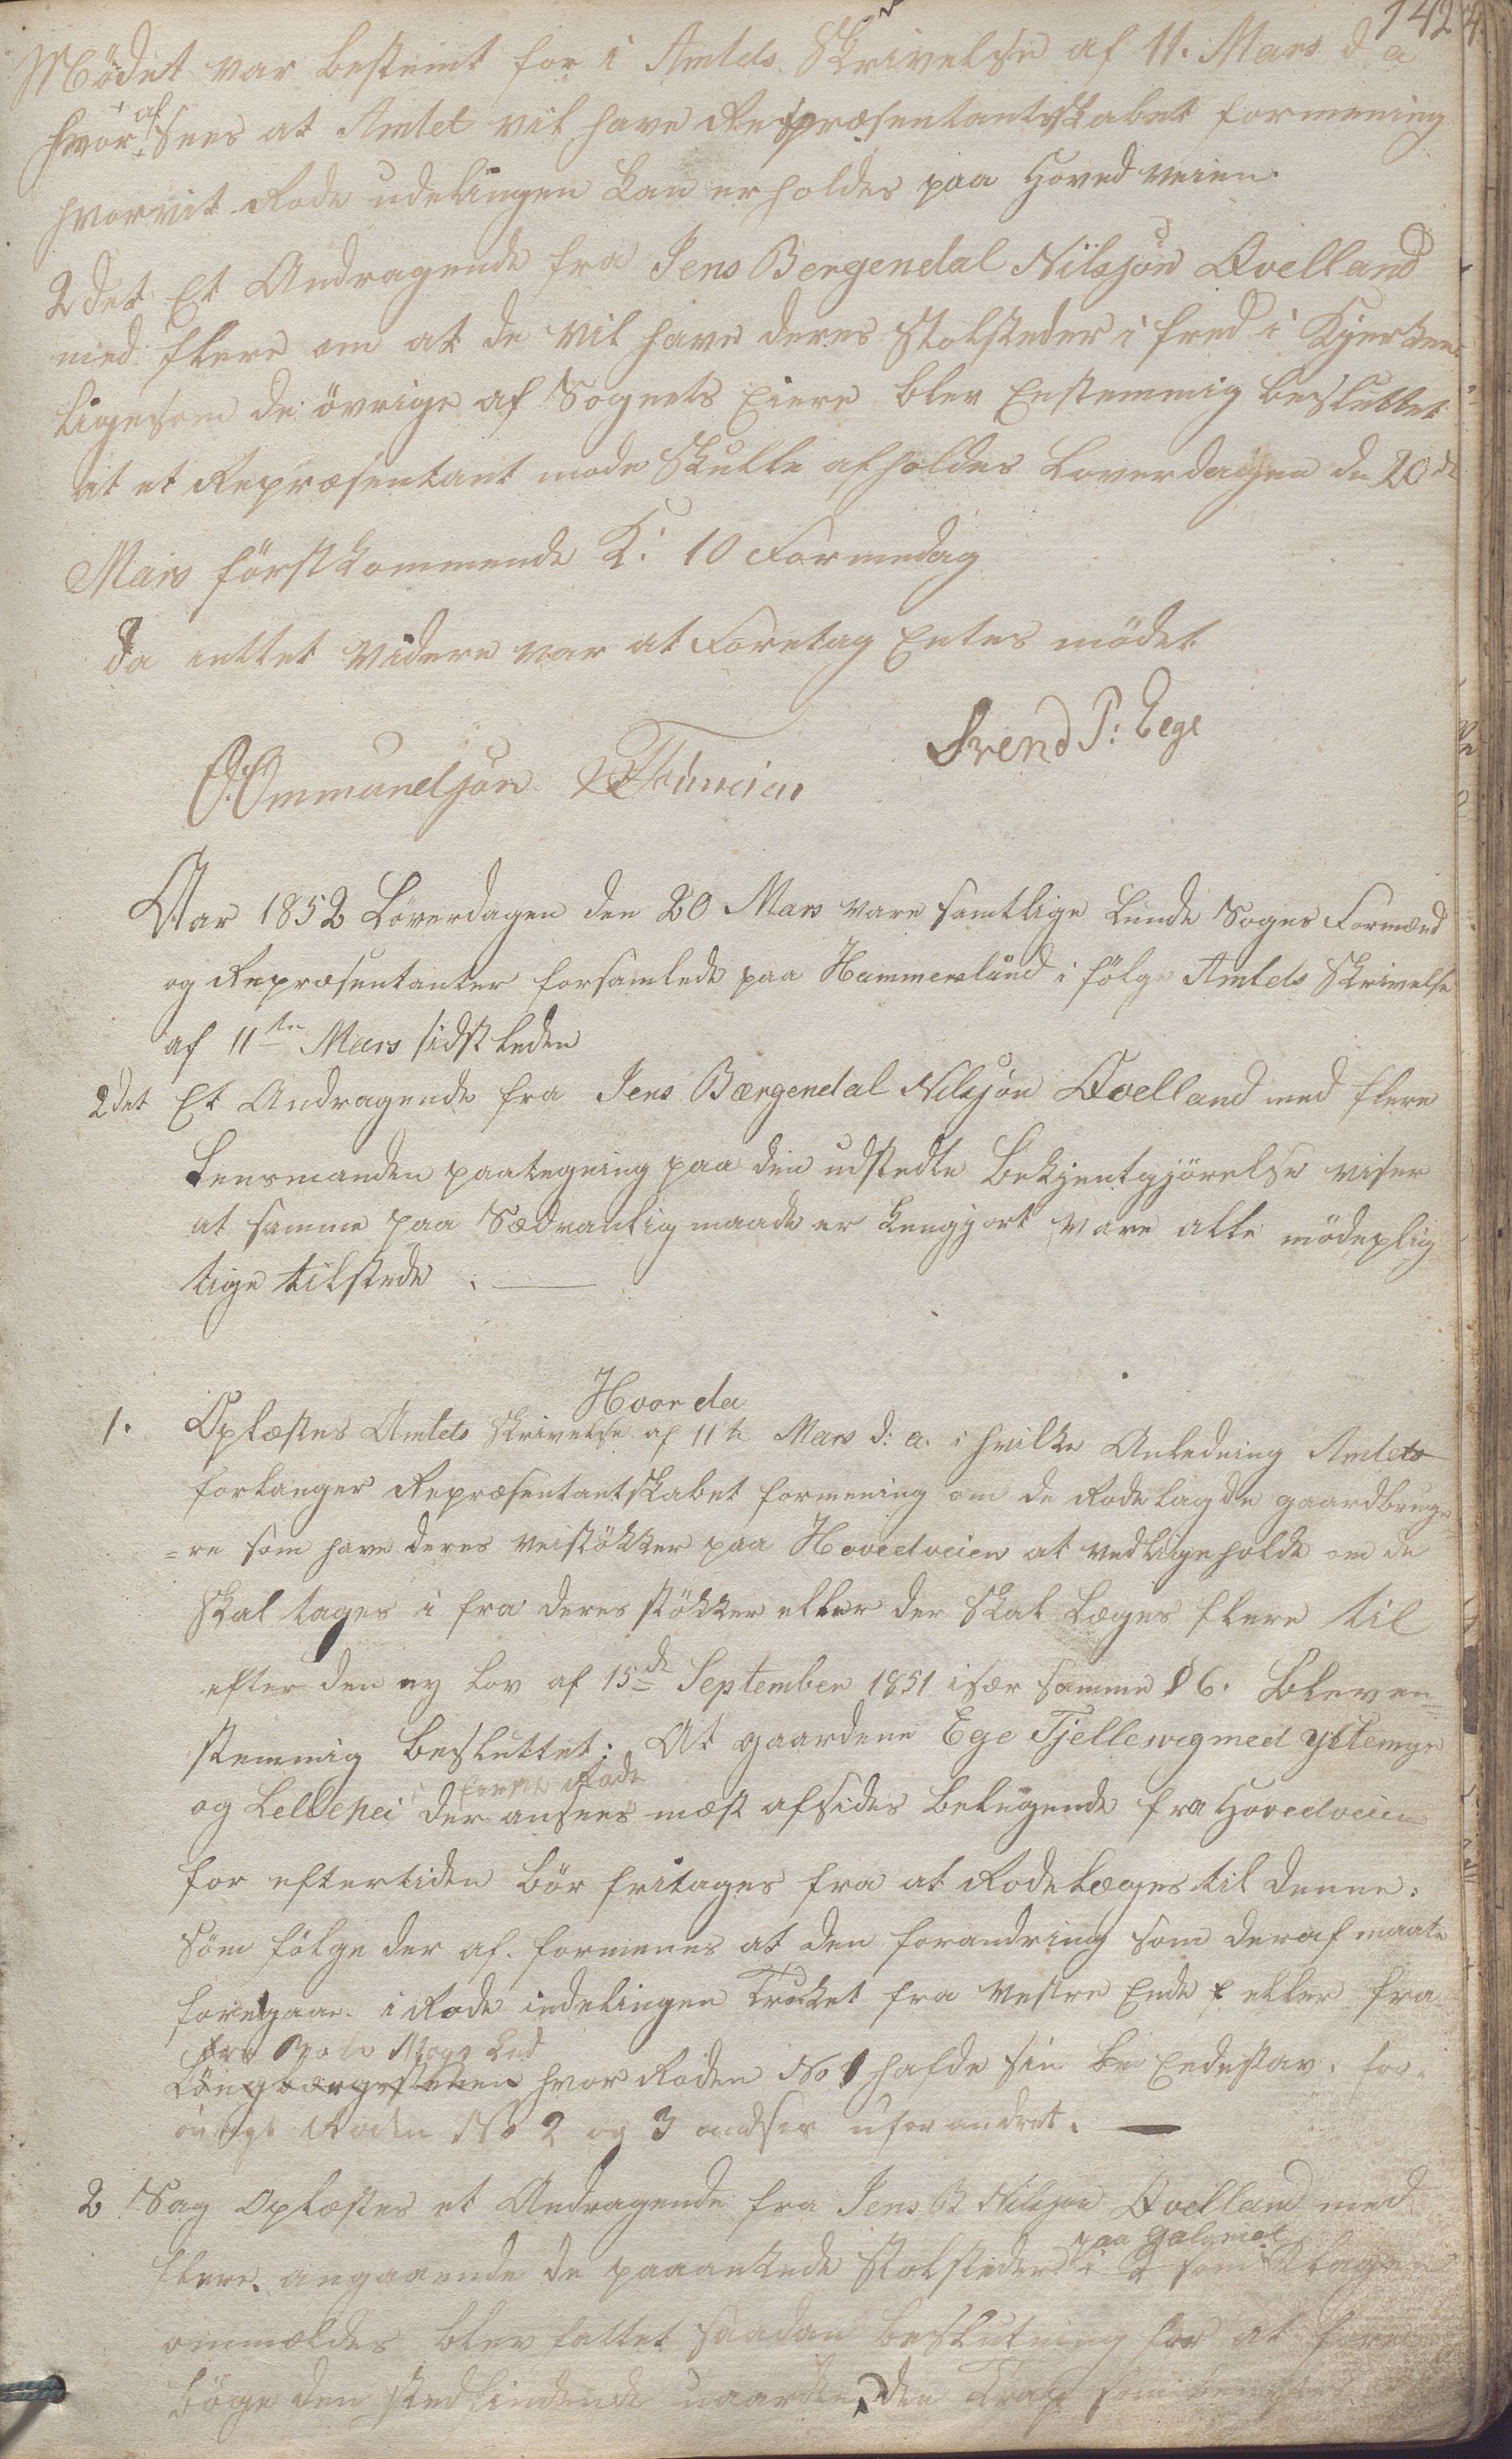 142
Mödet var bestemt for i Amtets Skrivelse af 11. Mars d a
hvor af Sees at Amtet vil have Repræsentantskabet formening
hvorvit Rode udelingen kan erholdes paa Hovedveien
2det Et Andragende fra Jens Bergendal Nilsjön Qvelland
med flere om at de vil have deres Stolsteder i fred i Kjerken
ligesom de övrige af Sognets Eiere blev Enstemmig besluttet
at et Repræsentant mode Skulle afholdes Loverdagen de 20de
Mars förstkommende K: 10 Formedag
da intet videre var at Foretag Entes mödet
Svend P: Ege
O Ommundsjön
Aar 1852 Löverdagen den 20 Mars vare samtlige Lunde Sogns Formænd
og Repræsentanter forsamlede paa Hammerslund i fölge Amtets Skrivelse
af 11te Mars sidstleden
2det Et Andragende fra Jens Bærgendal Nilsjön Qvelland med flere
Lensmanden paategning paa den udstedte Bekjentgjörelse viser
at samme paa Sædvanlig maade er kungjort vare alle mödeplig
tige tilstede .
Hvor da
1. Oplæstes Amtets Skrivelse af 11te Mars d: a. i hvilke Anledning Amtets
forlanger Repræsentantskabet formening om de Rodelagde gaardbruge
=re som have deres veistökker paa Hovedveien at vedligeholde om de
skal tages i fra deres stökker eller der skal læges flere til
efter den ny Lov af 15de September 1851 især samme § 6. Bleven=
stemmig besluttet: At gaardene Ege Tjellesvig med Ystemyr
i Rode
og Lellehei der ansees mæst afsides beligende fra Hovedveien
for eftertiden bör fritages fra at Rodelæges til denne:
som fölge der af. formenes at den forandring som deraf maate
foregaar. i Rode indelingen trukket fra Vestre Ende eller fra
fra
hvor Roden No 1 hafde sin Endestav. for.
övrigt Roden No 2 og 3 andsees uforandret. —
2 Sag Oplæstes et Andragende fra Jens B Nilsjön Qvelland med
paa
flere. angaaende de paaankede Stolsteder i som Klagen
ommældes blev fattet saadan beslutning for at fore
böge den stedfindende den Trap som